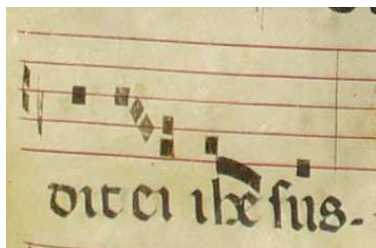 dit ei ihesus.